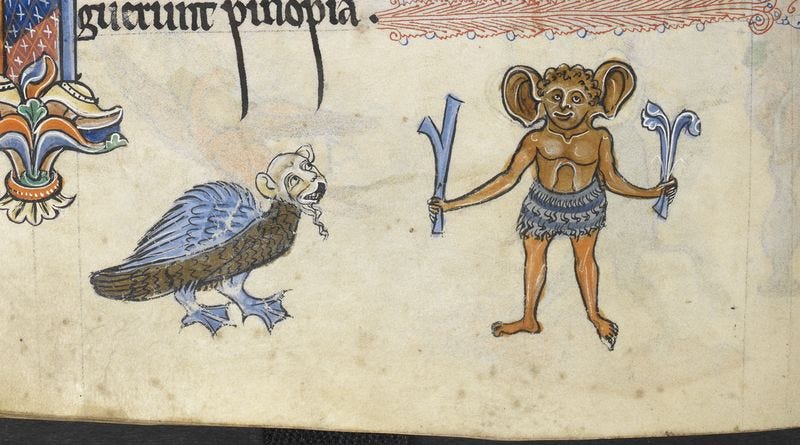 guerunt pinopia.